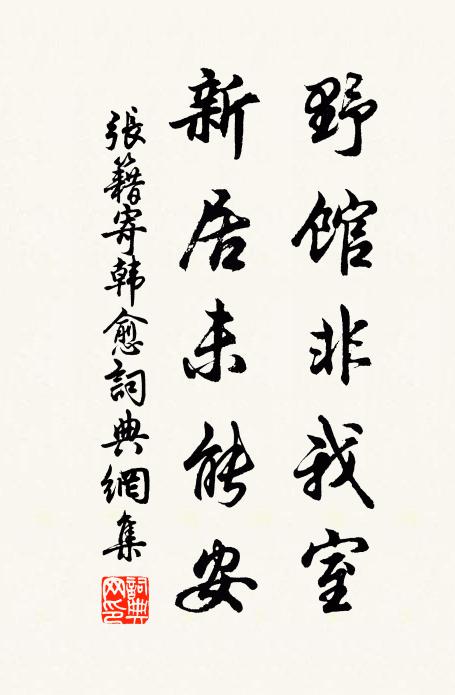 野馆非我室
新居未能安
張籍寄韩愈詞典網集
詞典
网印